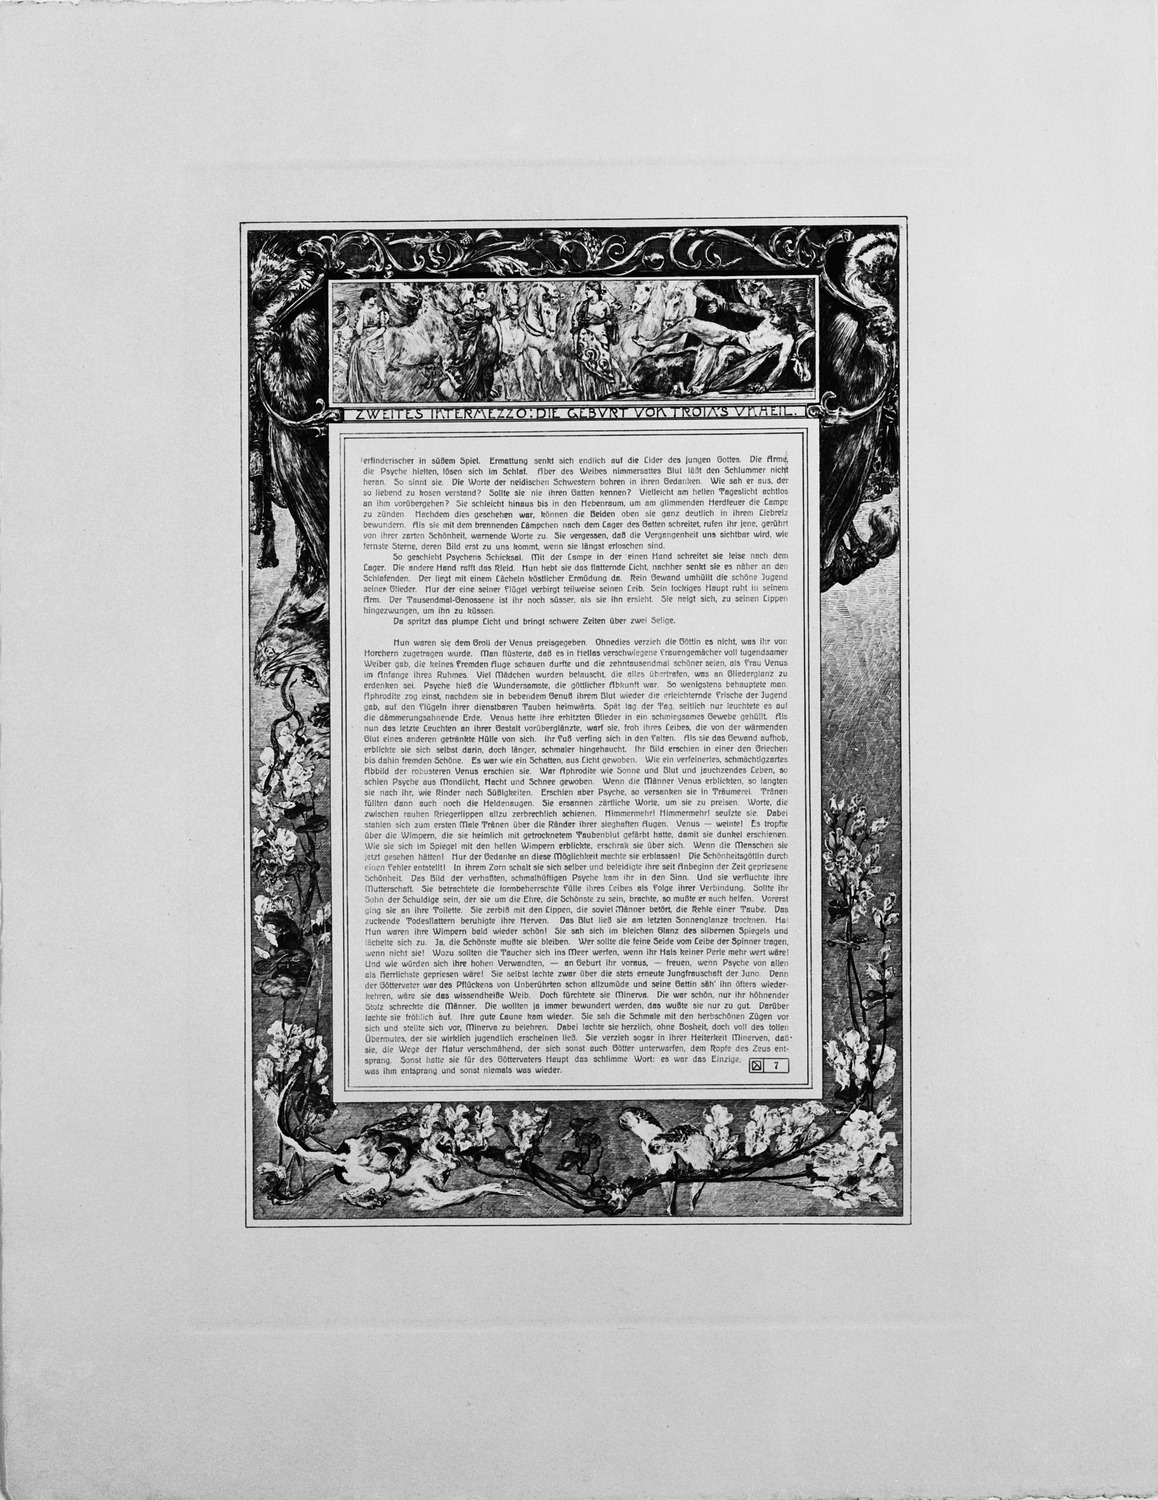 ZWEITES INTERMEZZO: DIE GEBVRT VON TROIA'S VNHEIL.
erfinderischer in süßem Spiel. Ermattung senkt sich endlich auf die Lider des jungen Gottes. Die Arme,
die Psyche hielten, lösen sich im Schlaf. Aber des Weibes nimmersattes Blut läßt den Schlummer nicht
heran. So sinnt sie. Die Worte der neidischen Schwestern bohren in ihren Gedanken. Wie sah er aus, der
so liebend zu kosen verstand? Sollte sie nie ihren Gatten kennen? Vielleicht am hellen Tageslicht achtlos
an ihm vorübergehen? Sie schleicht hinaus bis in den Nebenraum, um am glimmenden Herdfeuer die Lampe
zu zünden. Nachdem dies geschehen war, können die Beiden oben sie ganz deutlich in ihrem Liebreiz
bewundern. Als sie mit dem brennenden Lämpchen nach dem Lager des Gatten schreitet, rufen ihr jene, gerührt
von ihrer zarten Schönheit, warnende Worte zu. Sie vergessen, daß die Vergangenheit uns sichtbar wird, wie
fernste Sterne, deren Bild erst zu uns kommt, wenn sie längst erloschen sind.
So geschieht Psychens Schicksal. Mit der Lampe in der einen Hand schreitet sie leise nach dem
Lager. Die andere Hand rafft das Kleid. Nun hebt sie das flatternde Licht, nachher senkt sie es näher an den
Schlafenden. Der liegt mit einem Lächeln köstlicher Ermüdung da. Kein Gewand umhüllt die schöne Jugend
seiner Glieder. Nur der eine seiner Flügel verbirgt teilweise seinen Leib. Sein lockiges Haupt ruht in seinem
Arm. Der Tausendmal-Genossene ist ihr noch süsser, als sie ihn ersieht. Sie neigt sich, zu seinen Lippen
hingezwungen, um ihn zu küssen.
Da spritzt das plumpe Licht und bringt schwere Zeiten über zwei Selige.
Nun waren sie dem Groll der Venus preisgegeben. Ohnedies verzieh die Göttin es nicht, was ihr von
Horchern zugetragen wurde. Man flüsterte, daß es in Hellas verschwiegene Frauengemächer voll tugendsamer
Weiber gab, die keines Fremden Auge schauen durfte und die zehntausendmal schöner seien, als Frau Venus
im Anfange ihres Ruhmes. Viel Mädchen wurden belauscht, die alles übertrafen, was an Gliederglanz zu
erdenken sei. Psyche hieß die Wundersamste, die göttlicher Abkunft war. So wenigstens behauptete man.
Aphrodite zog einst, nachdem sie in bebendem Genuß ihrem Blut wieder die erleichternde Frische der Jugend
gab, auf den Flügeln ihrer dienstbaren Tauben heimwärts. Spät lag der Tag, seitlich nur leuchtete es auf
die dämmerungsahnende Erde. Venus hatte ihre erhitzten Glieder in ein schmiegsames Gewebe gehüllt. Als
nun das letzte Leuchten an ihrer Gestalt vorüberglänzte, warf sie, froh ihres Leibes, die von der wärmenden
Glut eines anderen getränkte Hülle von sich. Ihr Fuß verfing sich in den Falten. Als sie das Gewand aufhob,
erblickte sie sich selbst darin, doch länger, schmaler hingehaucht. Ihr Bild erschien in einer den Griechen
bis dahin fremden Schöne. Es war wie ein Schatten, aus Licht gewoben. Wie ein verfeinertes, schmächtigzartes
Abbild der robusteren Venus erschien sie. War Aphrodite wie Sonne und Blut und jauchzendes Leben, so
schien Psyche aus Mondlicht, Nacht und Schnee gewoben. Wenn die Männer Venus erblickten, so langten
sie nach ihr, wie Kinder nach Süßigkeiten. Erschien aber Psyche, so versanken sie in Träumerei. Tränen
füllten dann auch noch die Heldenaugen. Sie ersannen zärtliche Worte, um sie zu preisen. Worte, die
zwischen rauhen Kriegerlippen allzu zerbrechlich schienen. Nimmermehr! Nimmermehr! seufzte sie. Dabei
stahlen sich zum ersten Male Tränen über die Ränder ihrer sieghaften Augen. Venus — weinte! Es tropfte
über die Wimpern, die sie heimlich mit getrocknetem Taubenblut gefärbt hatte, damit sie dunkel erschienen.
Wie sie sich im Spiegel mit den hellen Wimpern erblickte, erschrak sie über sich. Wenn die Menschen sie
jetzt gesehen hätten! Nur der Gedanke an diese Möglichkeit machte sie erblassen! Die Schönheitsgöttin durch
einen Fehler entstellt! In ihrem Zorn schalt sie sich selber und beleidigte ihre seit Anbeginn der Zeit gepriesene
Schönheit. Das Bild der verhaßten, schmalhüftigen Psyche kam ihr in den Sinn. Und sie verfluchte ihre
Mutterschaft. Sie betrachtete die formbeherrschte Fülle ihres Leibes als Folge ihrer Verbindung. Sollte ihr
Sohn der Schuldige sein, der sie um die Ehre, die Schönste zu sein, brachte, so mußte er auch helfen. Vorerst
ging sie an ihre Toilette. Sie zerbiß mit den Lippen, die soviel Männer betört, die Kehle einer Taube. Das
zuckende Todesflattern beruhigte ihre Nerven. Das Blut ließ sie am letzten Sonnenglanze trocknen. Ha!
Nun waren ihre Wimpern bald wieder schön! Sie sah sich im bleichen Glanz des silbernen Spiegels und
lächelte sich zu. Ja, die Schönste mußte sie bleiben. Wer sollte die feine Seide vom Leibe der Spinner tragen,
wenn nicht sie! Wozu sollten die Taucher sich ins Meer werfen, wenn ihr Hals keiner Perle mehr wert wäre!
Und wie würden sich ihre hohen Verwandten, — an Geburt ihr voraus, — freuen, wenn Psyche von allen
als Herrlichste gepriesen wäre! Sie selbst lachte zwar über die stets erneute Jungfrauschaft der Juno. Denn
der Göttervater war des Pflückens von Unberührten schon allzumüde und seine Gattin säh' ihn öfters wieder-
kehren, wäre sie das wissendheiße Weib. Doch fürchtete sie Minerva. Die war schön, nur ihr höhnender
Stolz schreckte die Männer. Die wollten ja immer bewundert werden, das wußte sie nur zu gut. Darüber
lachte sie fröhlich auf. Ihre gute Laune kam wieder. Sie sah die Schmale mit den herbschönen Zügen vor
sich und stellte sich vor, Minerva zu belehren. Dabei lachte sie herzlich, ohne Bosheit, doch voll des tollen
Übermutes, der sie wirklich jugendlich erscheinen ließ. Sie verzieh sogar in ihrer Heiterkeit Minerven, daß
sie, die Wege der Natur verschmähend, der sich sonst auch Götter unterwarfen, dem Kopfe des Zeus ent-
sprang. Sonst hatte sie für des Göttervaters Haupt das schlimme Wort: es war das Einzige,
was ihm entsprang und sonst niemals was wieder.
7